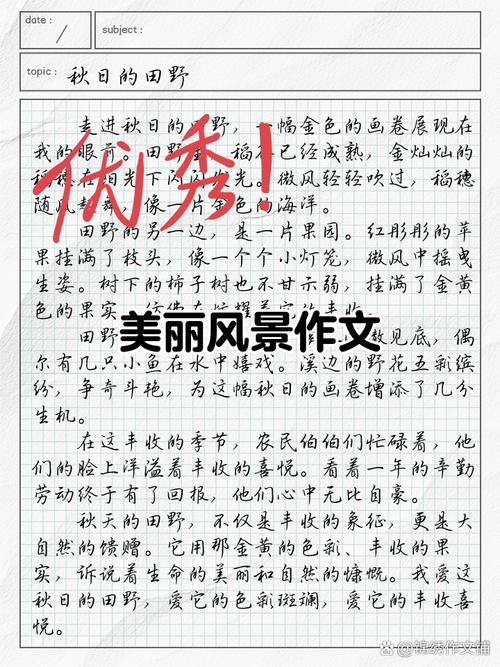 date :
subject :
topic : 秋日的田野
走进秋日的田野，一幅金色的画卷展现在
我的眼前。田野 稻 已经成熟，金灿灿的
稻穗在阳光下闪闪发光。微风轻轻吹过，稻穗
随风 像一片金色的海洋。
优秀！
田野的另一边，是一片果园。红彤彤的苹
果挂满了枝头，像一个个小灯笼，微风中摇曳
生姿。树下的柿子树也不甘示弱，挂满了金黄
色的果实
美丽风景作文
田野 见底，偶
尔有几只小鱼在水中嬉戏。溪边的野花五彩缤
纷，争奇斗艳，为这幅秋日的画卷增添了几分
生机。
在这丰收的季节，农民伯伯们忙碌着，他
们的脸上洋溢着丰收的喜悦。看着一年的辛勤
劳动终于有了回报，他们心中无比自豪。
秋天的田野，不仅是丰收的象征，更是大
自然的馈赠。它用那金黄的色彩、丰收的果
实，诉说着生命的美丽和自然的慷慨。我爱这
秋日的田野，爱它的色彩斑斓，爱它的丰收喜
悦。
@锦绣作文铺